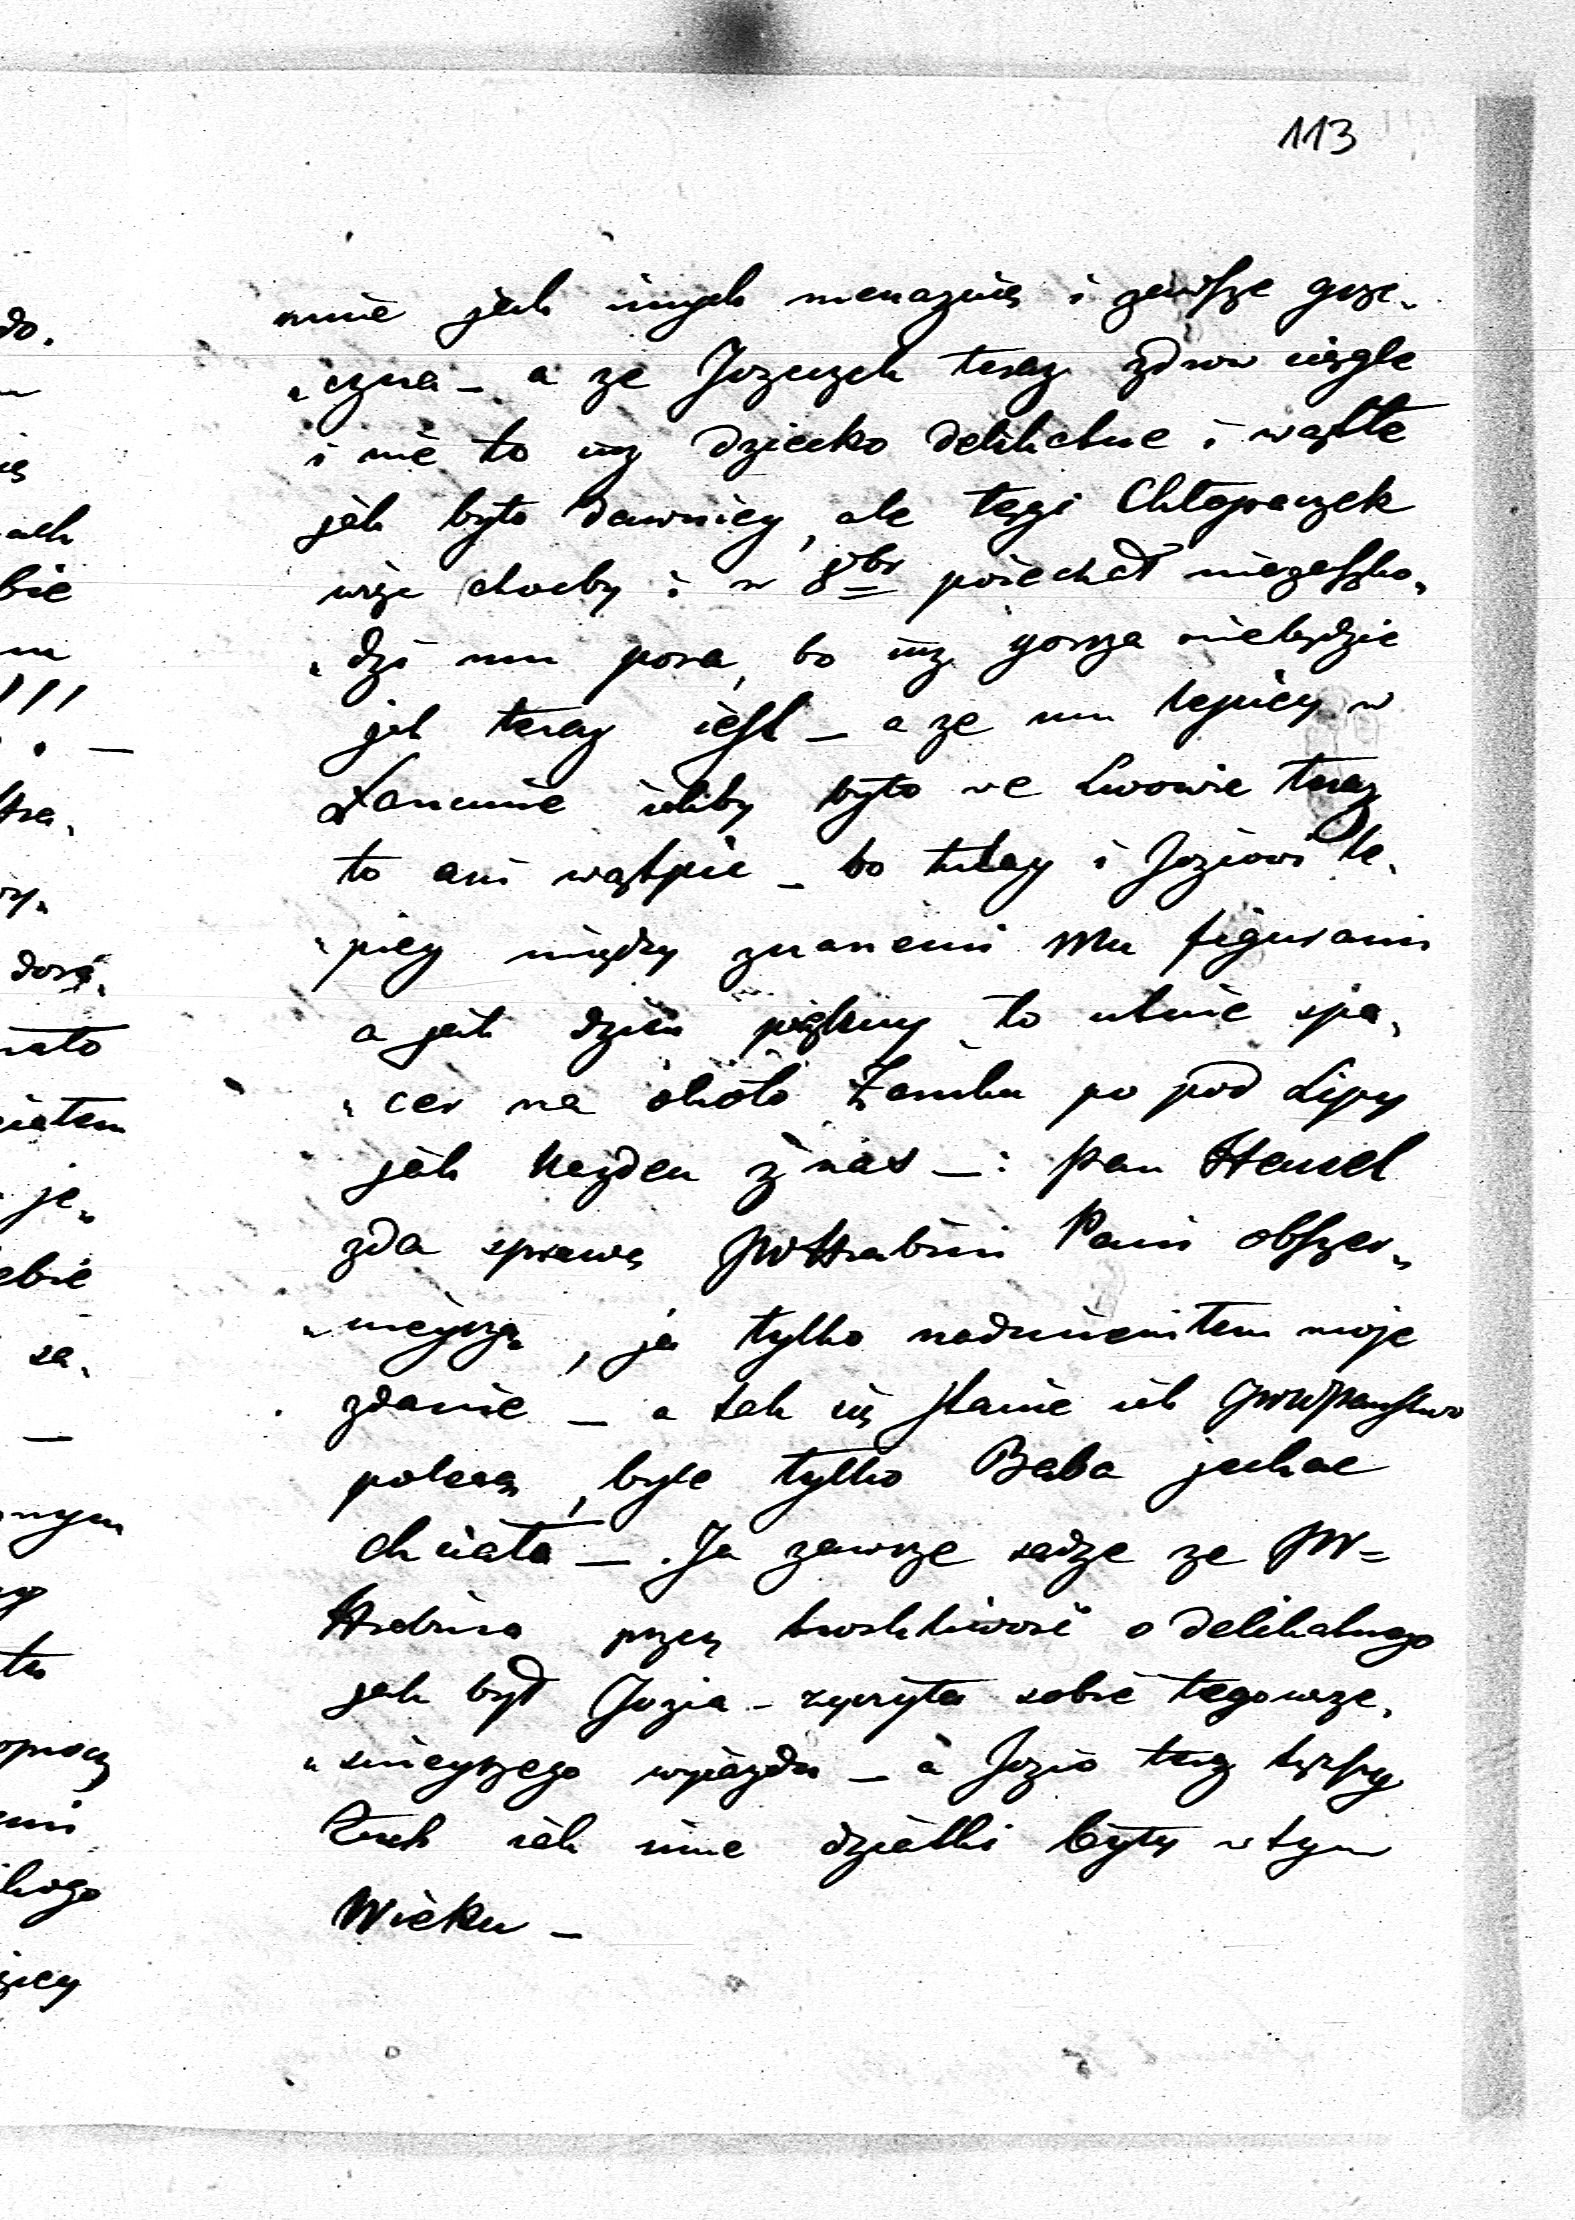 113
mnie jak inych nienaznię i zawsze grze„
„czna – a ze Jozeczek teraz zdrow ciągle
i nie to iuz dziecko delikatne i wątłe
jak było dawniey, ale tęgi Chłopaczek
więc choćby i w 8br poiechał niezaszko„
„dzi mu pora, bo iuz gorsza niebędzie
jak teraz iest – a ze mu lepiey w
Łancucie iakby było we Lwowie teraz
to ani wątpie – bo tutay i Joziowi le„
„piey między znanemi Mu figurami
a jak dzień piękny to utnie spa„
„cer na około Zamku po pod Lipy
jak każden z nas –: Pan Hensel
zda sprawę JWHrabini Pani obszer„
„nieyszą, ja tylko nadmieniłem moje
zdanie – a tak się stanie iak JWWPaństwo
polecą, byle tylko Baba jechac
chciała –. Ja zawsze sądze ze JW=
Hrabina przez troskliwość o delikatnego
jak był Jozia – zyczyła sobie tegowrze„
„snieyszego wyiazdu – a Jozio teraz tęższy
Zuch iak inne dziatki były w tym
Wieku –
do.
ach
bie
!!!
dosć„
nato
je„
ebie
sa„
nym